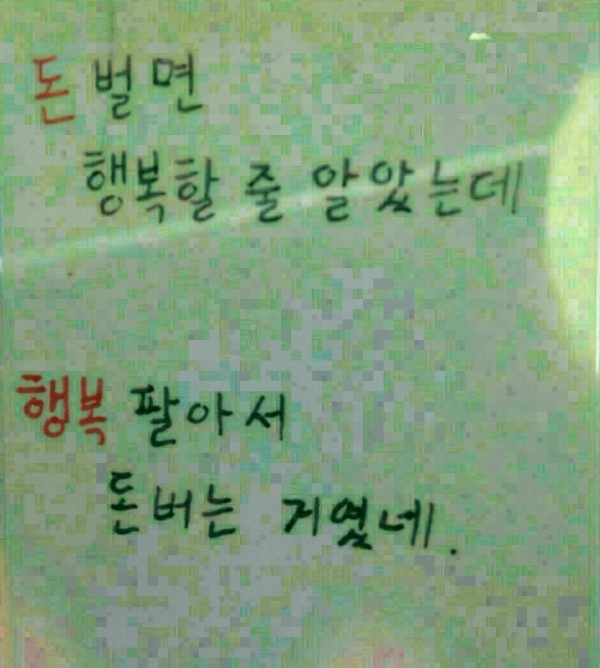 돈 벌면
행복할 줄 알았는데
행복 팔아서
돈버는 거였네.